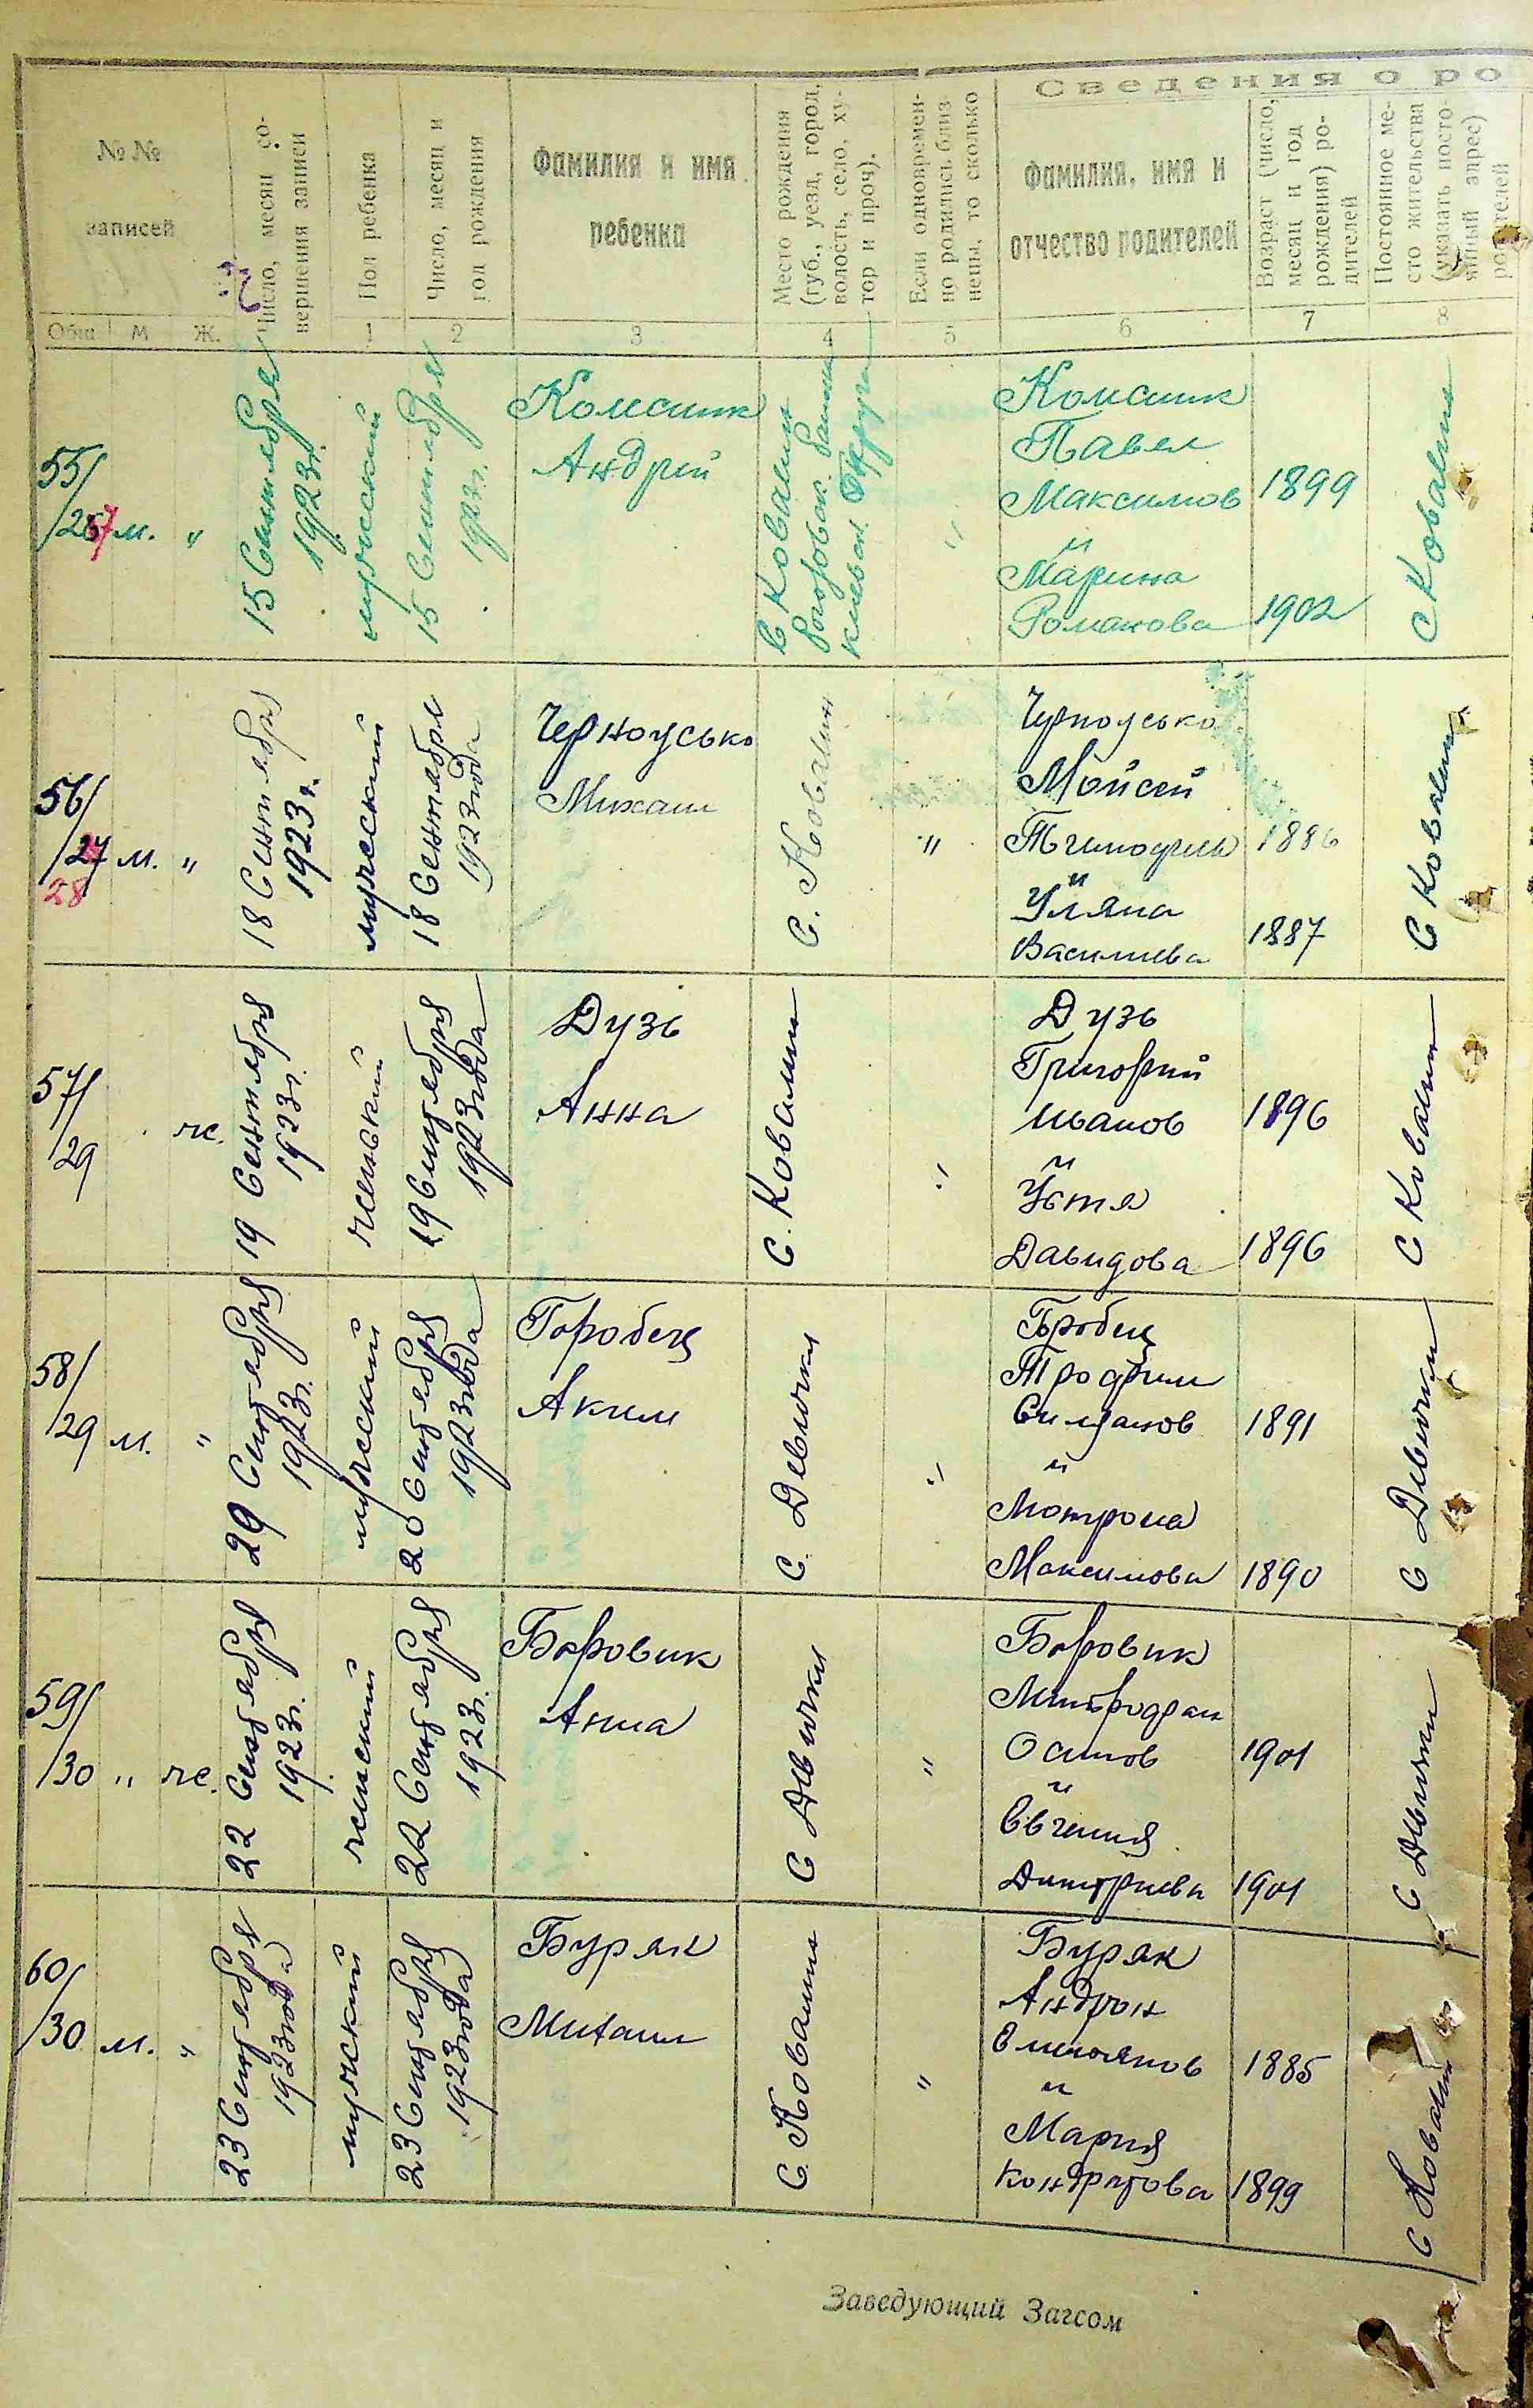 Сведения о ро
№№
записей
Общ.
М
Ж.
Число, месяц со-
вершения записи
Пол ребенка
1
Число, месяц и
год рождения
2
Фамилия и имя
ребенка
3
Место рождения
(губ., уезд, город,
волость, село, ху-
тор и проч).
4
Если одновремен-
но родились близ-
нецы, то сколько
5
Фамилия, имя и
отчество родителей
6
Возраст (число,
месяц и год
рождения) ро-
дителей
7
Постоянное ме-
сто жительства
(указать посто-
янный адрес)
родителей
8
55/
м.
"
15 Сентября
1923г.
мужский
15 Сентября
1923г.
Андрей
С Ковалин
"
Павел
Максимов
1899
и
Марина
Романова
1902
С Ковалин
56/
/27
28
м.
"
18 Сентября
1923г.
мужеский
18 Сентября
1923года
Черноусько
Михаил
С. Ковалин
"
Черноусько
Мойсей
1886
и
Уляна
Василиева
1887
С Ковалин
57/
/29
ж.
19 Сентября
1923г.
женьский
19 Сентября
1923года
Дузь
Анна
С. Ковалин
"
Дузь
Григорий
Иванов
1896
и
Устя
Давидова
1896
С Ковалин
58/
/29
м.
"
29 Сентября
1923г.
мужеский
20 Сентября
1923года
Горобец
Аким
С. Девички
"
Трофим
1891
и
Мотрона
Максимова
1890
С Девички
59/
/30
"
ж.
22 Сентября
1923г.
женский
22 Сентября
1923г.
Боровик
Анна
С Девички
"
Боровик
Митрофан
Осипов
1901
и
Евгения
Дмитриева
1901
С Девички
60/
/30
м.
"
23 Сентября
1923года
мужский
23 Сентября
1923года
Буряк
Михаил
С. Ковалин
"
Буряк
Андрон
1885
и
Мария
Кондратова
1899
С Ковалин
Заведующий Загсом